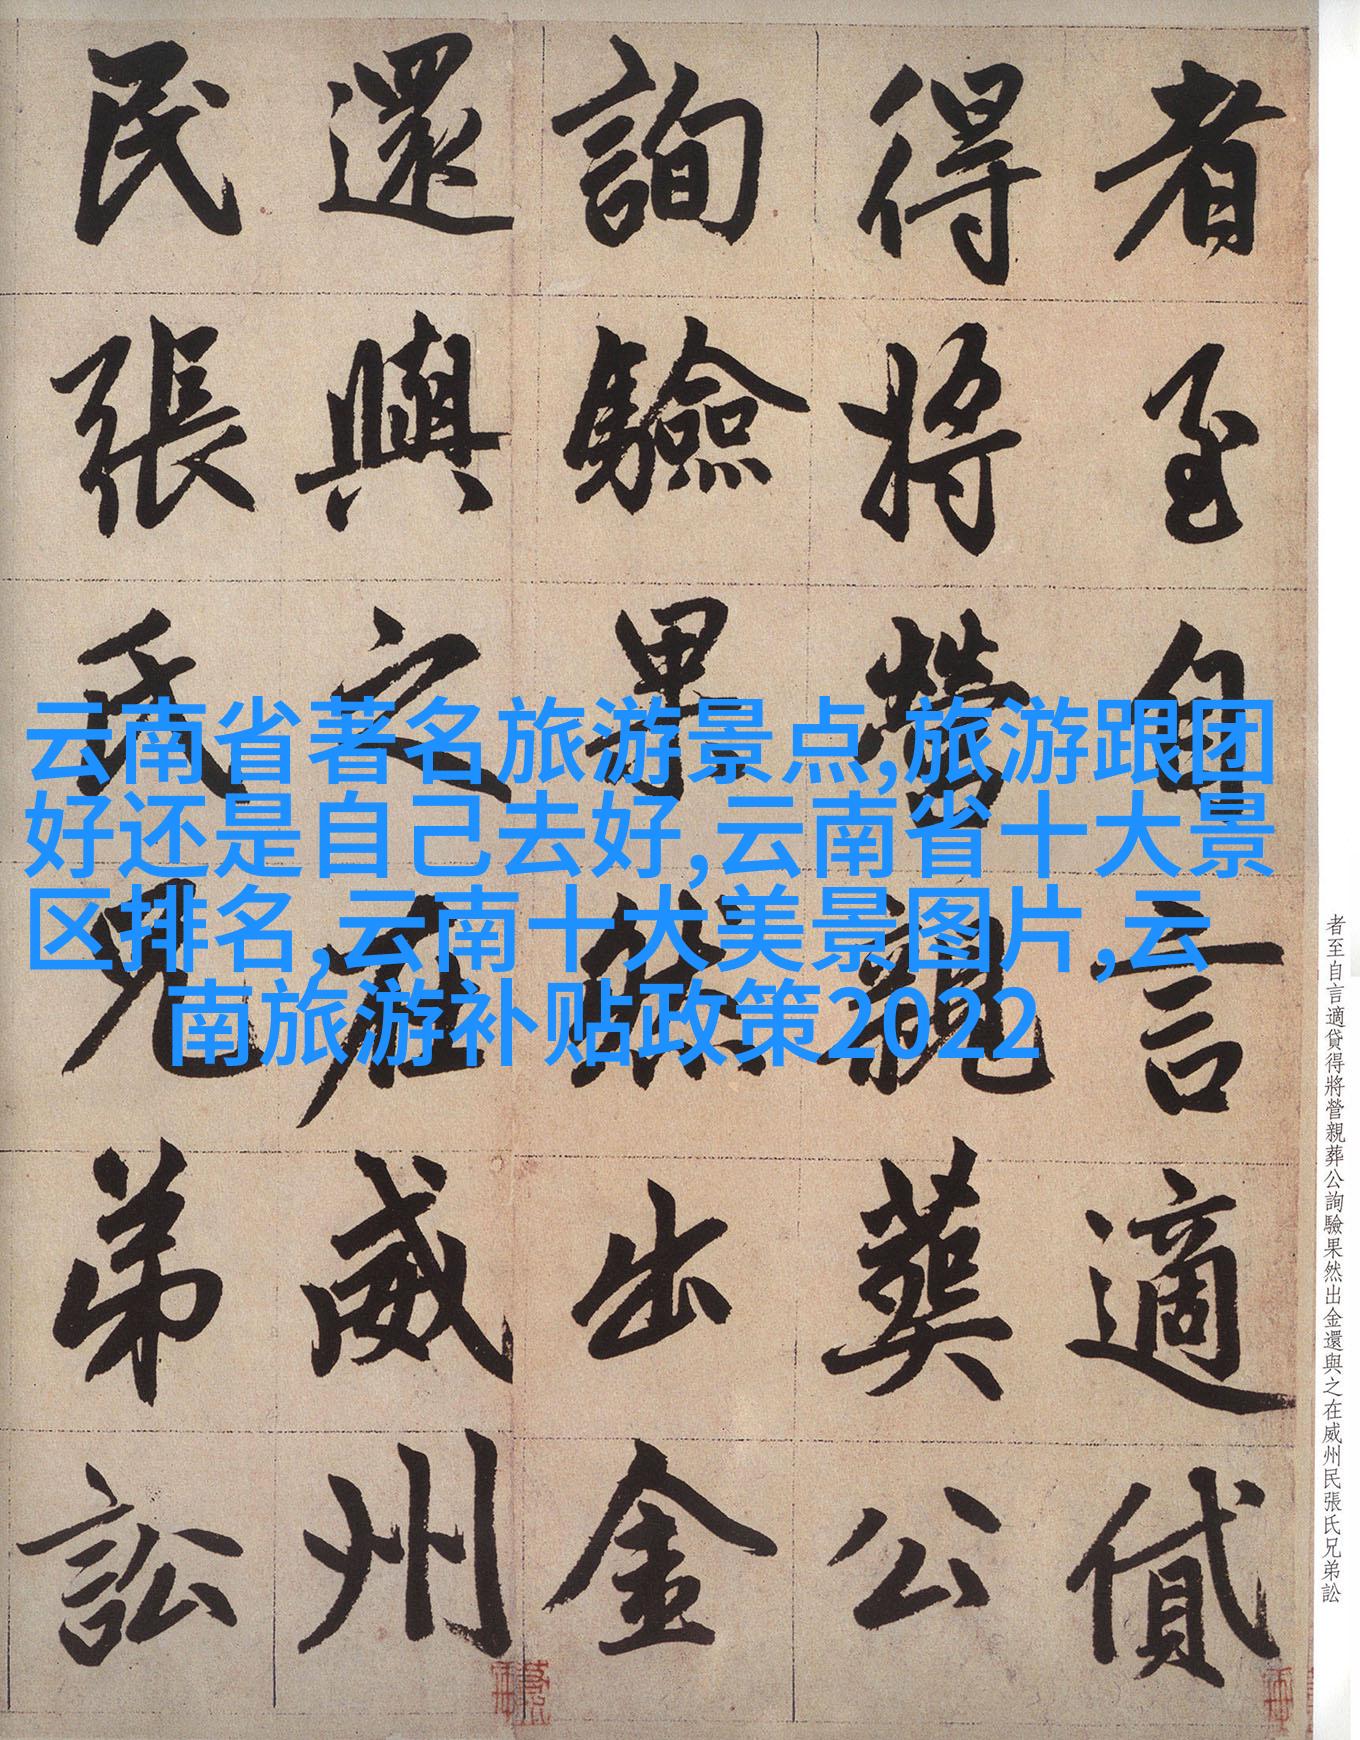 云南省著名旅游景点,旅游跟团
好还是自己去好,云南省十大景
区排名,云南十大美景图片,云
南旅游补贴政策2022
者至自言適貸
得將營親葬公
詢驗果然出金
還與之在威州
民張氏兄弟訟
者至自言適貸得將營親葬公詢驗果然出金還與之在威州民張氏兄弟訟